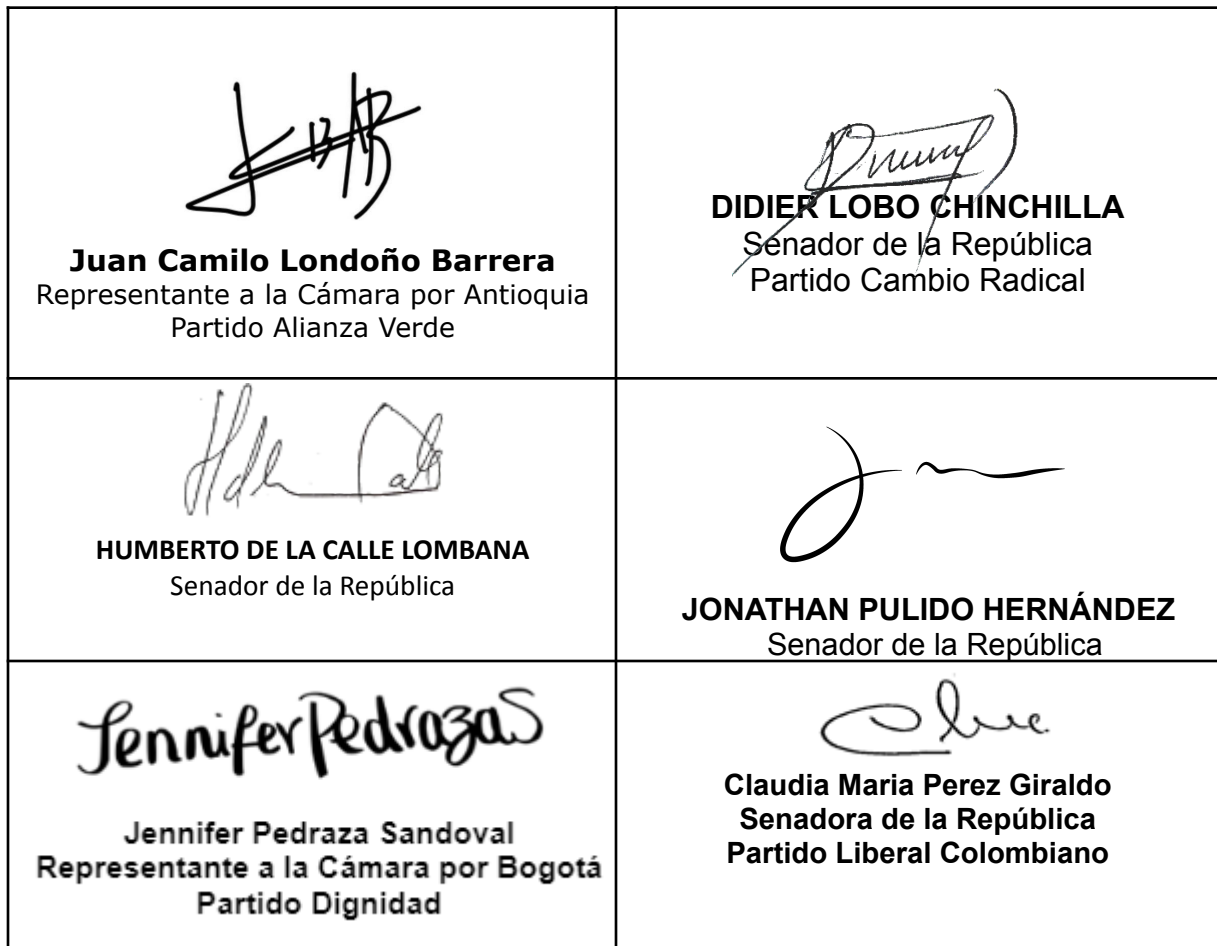 Juan Camilo Londoño Barrera
Representante a la Cámara por Antioquia
Partido Alianza Verde
DIDIER LOBO CHINCHILLA
Senador de la República
Partido Cambio Radical
HUMBERTO DE LA CALLE LOMBANA
Senador de la República
JONATHAN PULIDO HERNÁNDEZ
Senador de la República
Jennifer Pedraza S
Jennifer Pedraza Sandoval
Representante a la Cámara por Bogotá
Partido Dignidad
Claudia Maria Perez Giraldo
Senadora de la República
Partido Liberal Colombiano